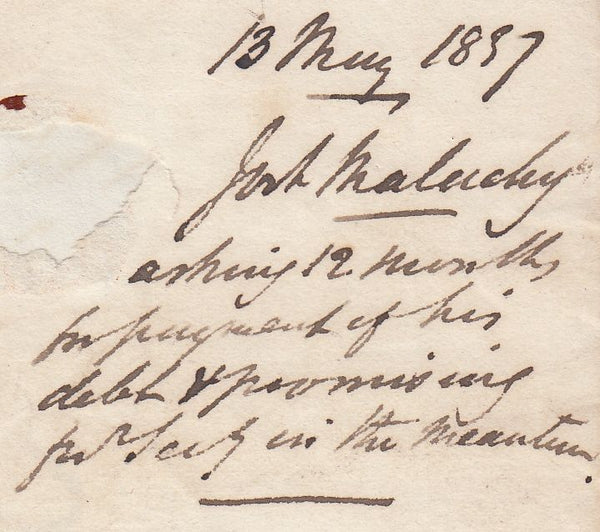 13 May 1857
Josh Maluchy
asking 12 months
for payment of his
debt & promising
in the meantime.